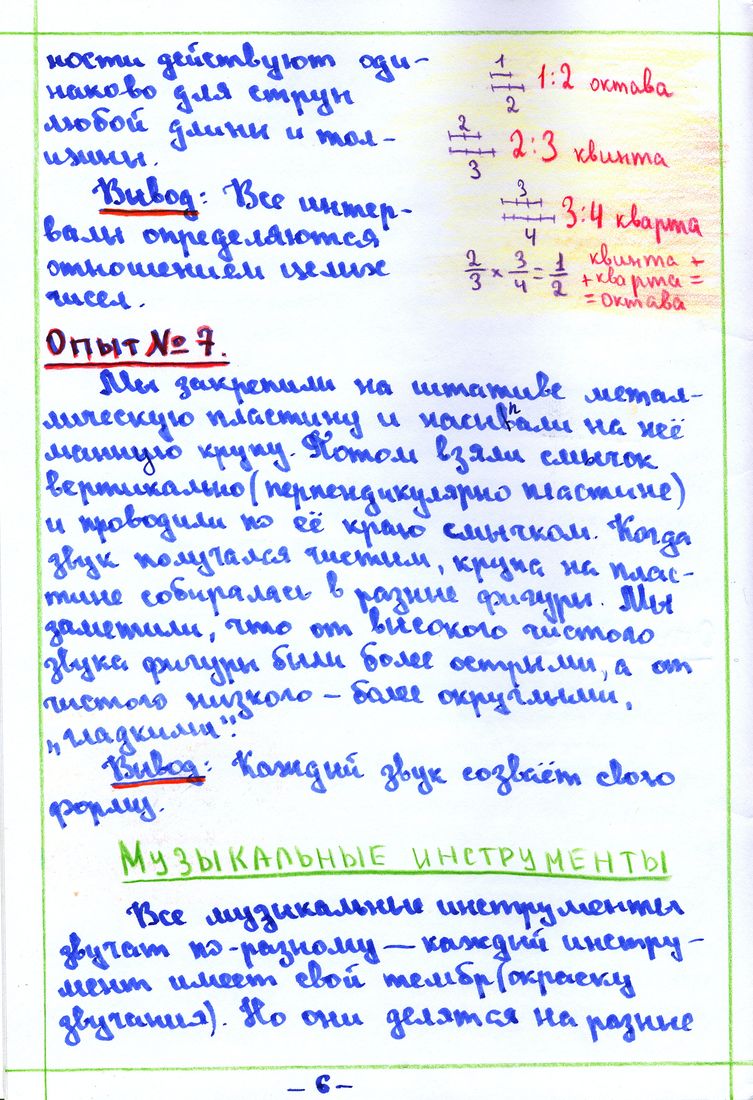 ности действуют оди-
наково для струн
любой длины и тол-
щины.
Вывод: Все интер-
валы определяются
отношением целых
чисел.
1
2
1:2 октава
2
3
2:3 квинта
3
4
3:4 кварта
2/3 × 3/4 = 1/2
квинта +
+ кварта =
= октава
Опыт № 7.
Мы закрепили на штативе метал-
лическую пластину и насыпали на неё
манную крупу. Потом взяли смычок
вертикально (перпендикулярно пластине)
и проводили по её краю смычком. Когда
звук получался чистым, крупа на плас-
тине собиралась в разные фигуры. Мы
заметили, что от высокого чистого
звука фигуры были более острыми, а от
чистого низкого – более округлыми,
„гладкими".
Вывод: Каждый звук создаёт свою
форму.
МУЗЫКАЛЬНЫЕ ИНСТРУМЕНТЫ
Все музыкальные инструменты
звучат по-разному — каждый инстру-
мент имеет свой тембр (окраску
звучания). Но они делятся на разные
– 6 –